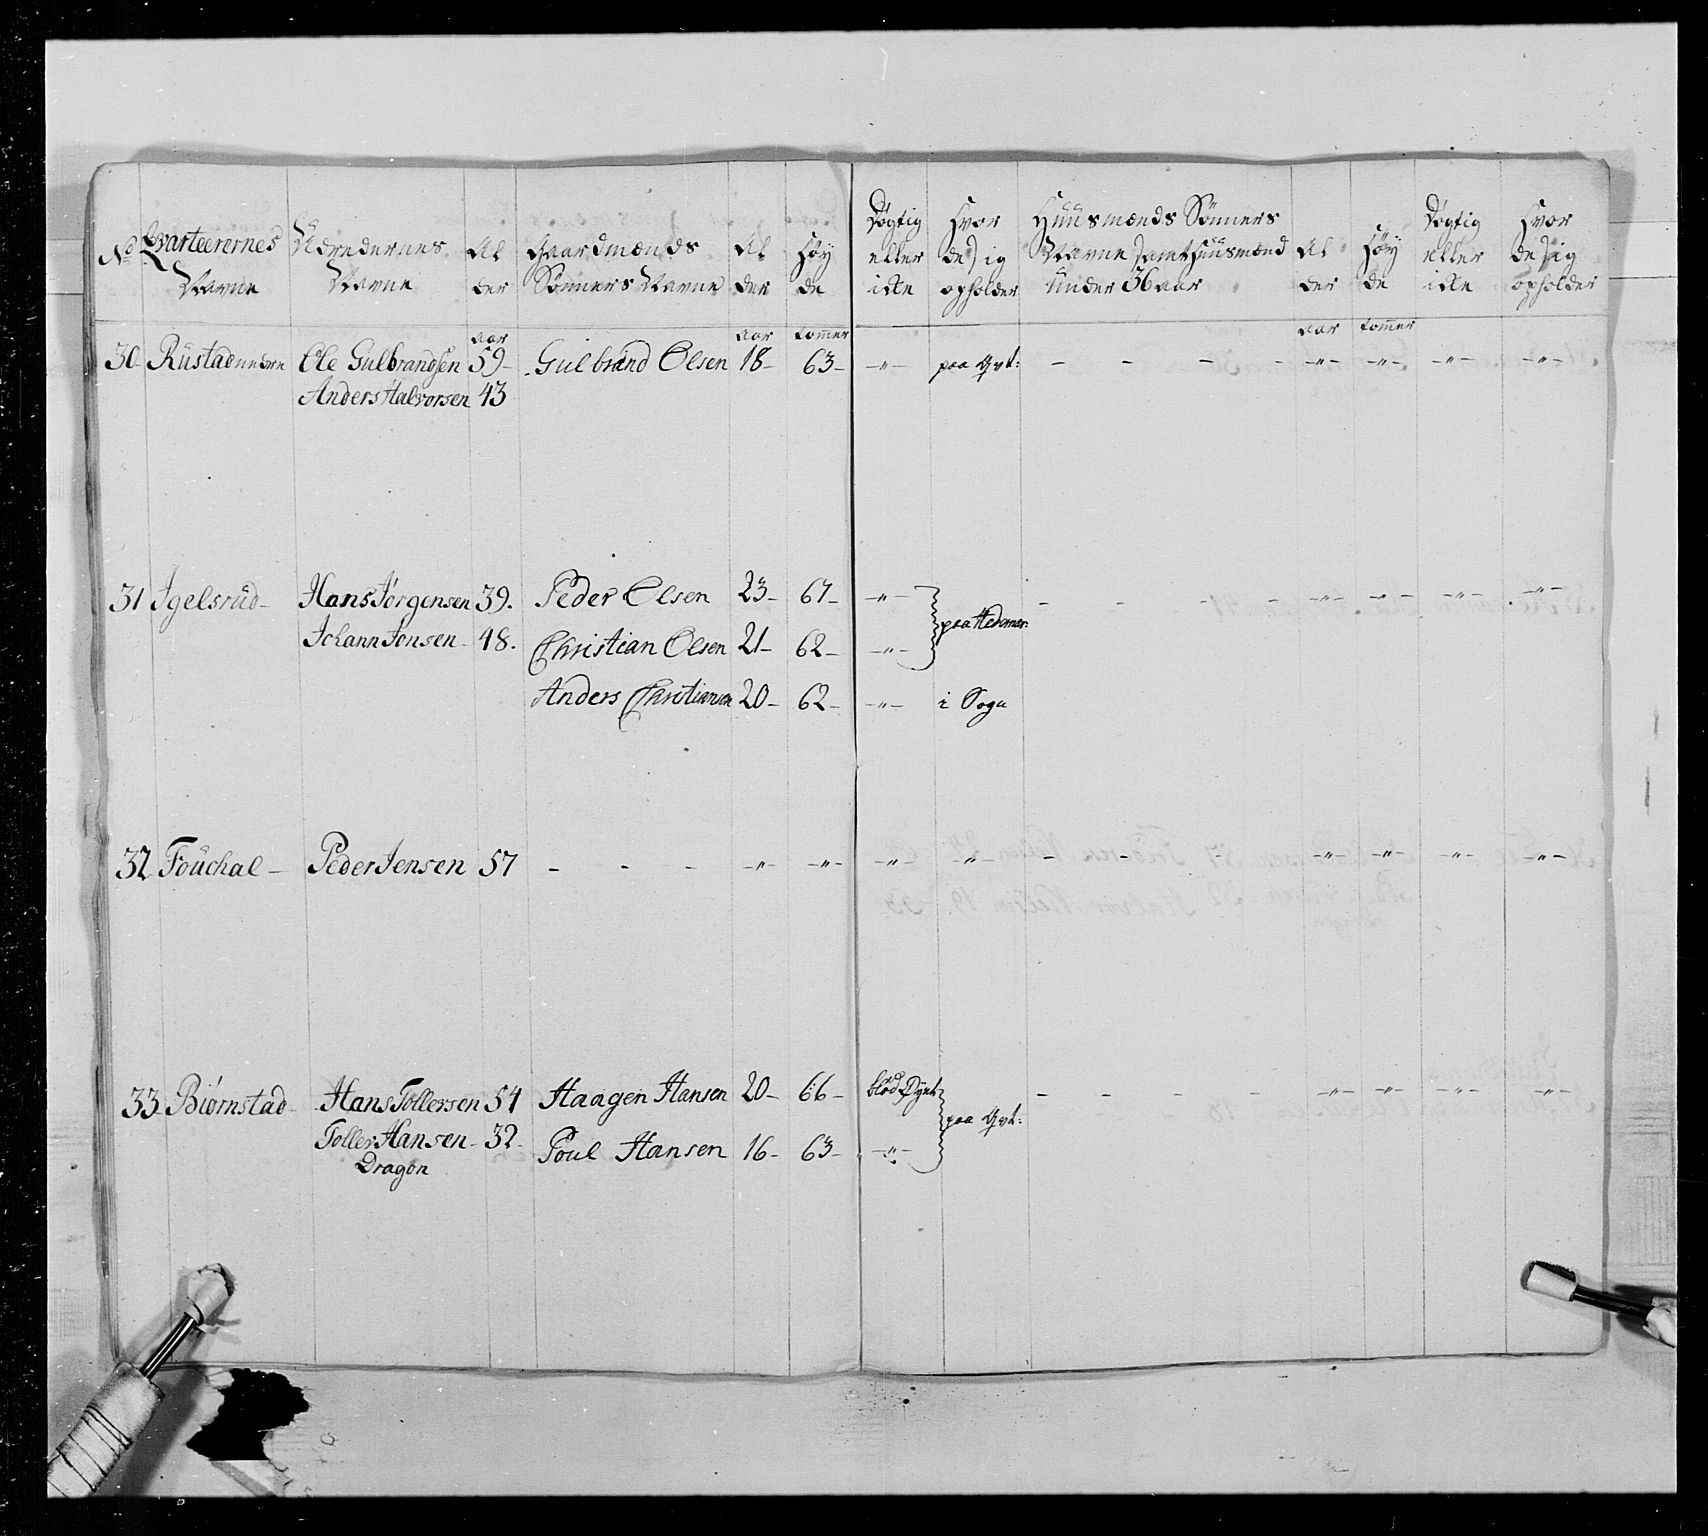 No Qvarteerernes Navne | Udredernes Navne | Al der | Gaardmænds Sønners Navne | Al der | Høy de | Dygtig eller ikke | Hvor de sig opholder | Huusmænds Sønners Navne samt Huusmænd under 36 aar | Al der | Høy de | Dygtig eller ikke | Hvor de sig opholder
aar aar tommer aar tommer
30 Rustad nedre Ole Gulbrandsen 59 - Gulbrand Olsen 18 - 63 - -"- paa Qvt: - - - - -"- -"- -"- -"-
Anders Halvorsen 43
31 Igelsrud - Hans Jørgensen 39. Peder Olsen 23 - 67 - -"- paa Hedemar: - - - - -"- -"- -"- -"-
Johann Jonsen - 48. Christian Olsen 21 - 62 - -"-
Anders Christiansen 20 - 62 - -"- i Sogn
32 Fouchal - Peder Jensen 57 - - - -"- -"- -"- -"- - - -"- -"- -"- -"-
33 Biørnstad - Hans Tollersen 54 Haagen Hansen 20 - 66 - blød Øynt paa Qvt: - - - - -"- -"- -"- -"-
Toller Hansen - 32 - Poul Hansen 16 - 63 - -"-
Dragon